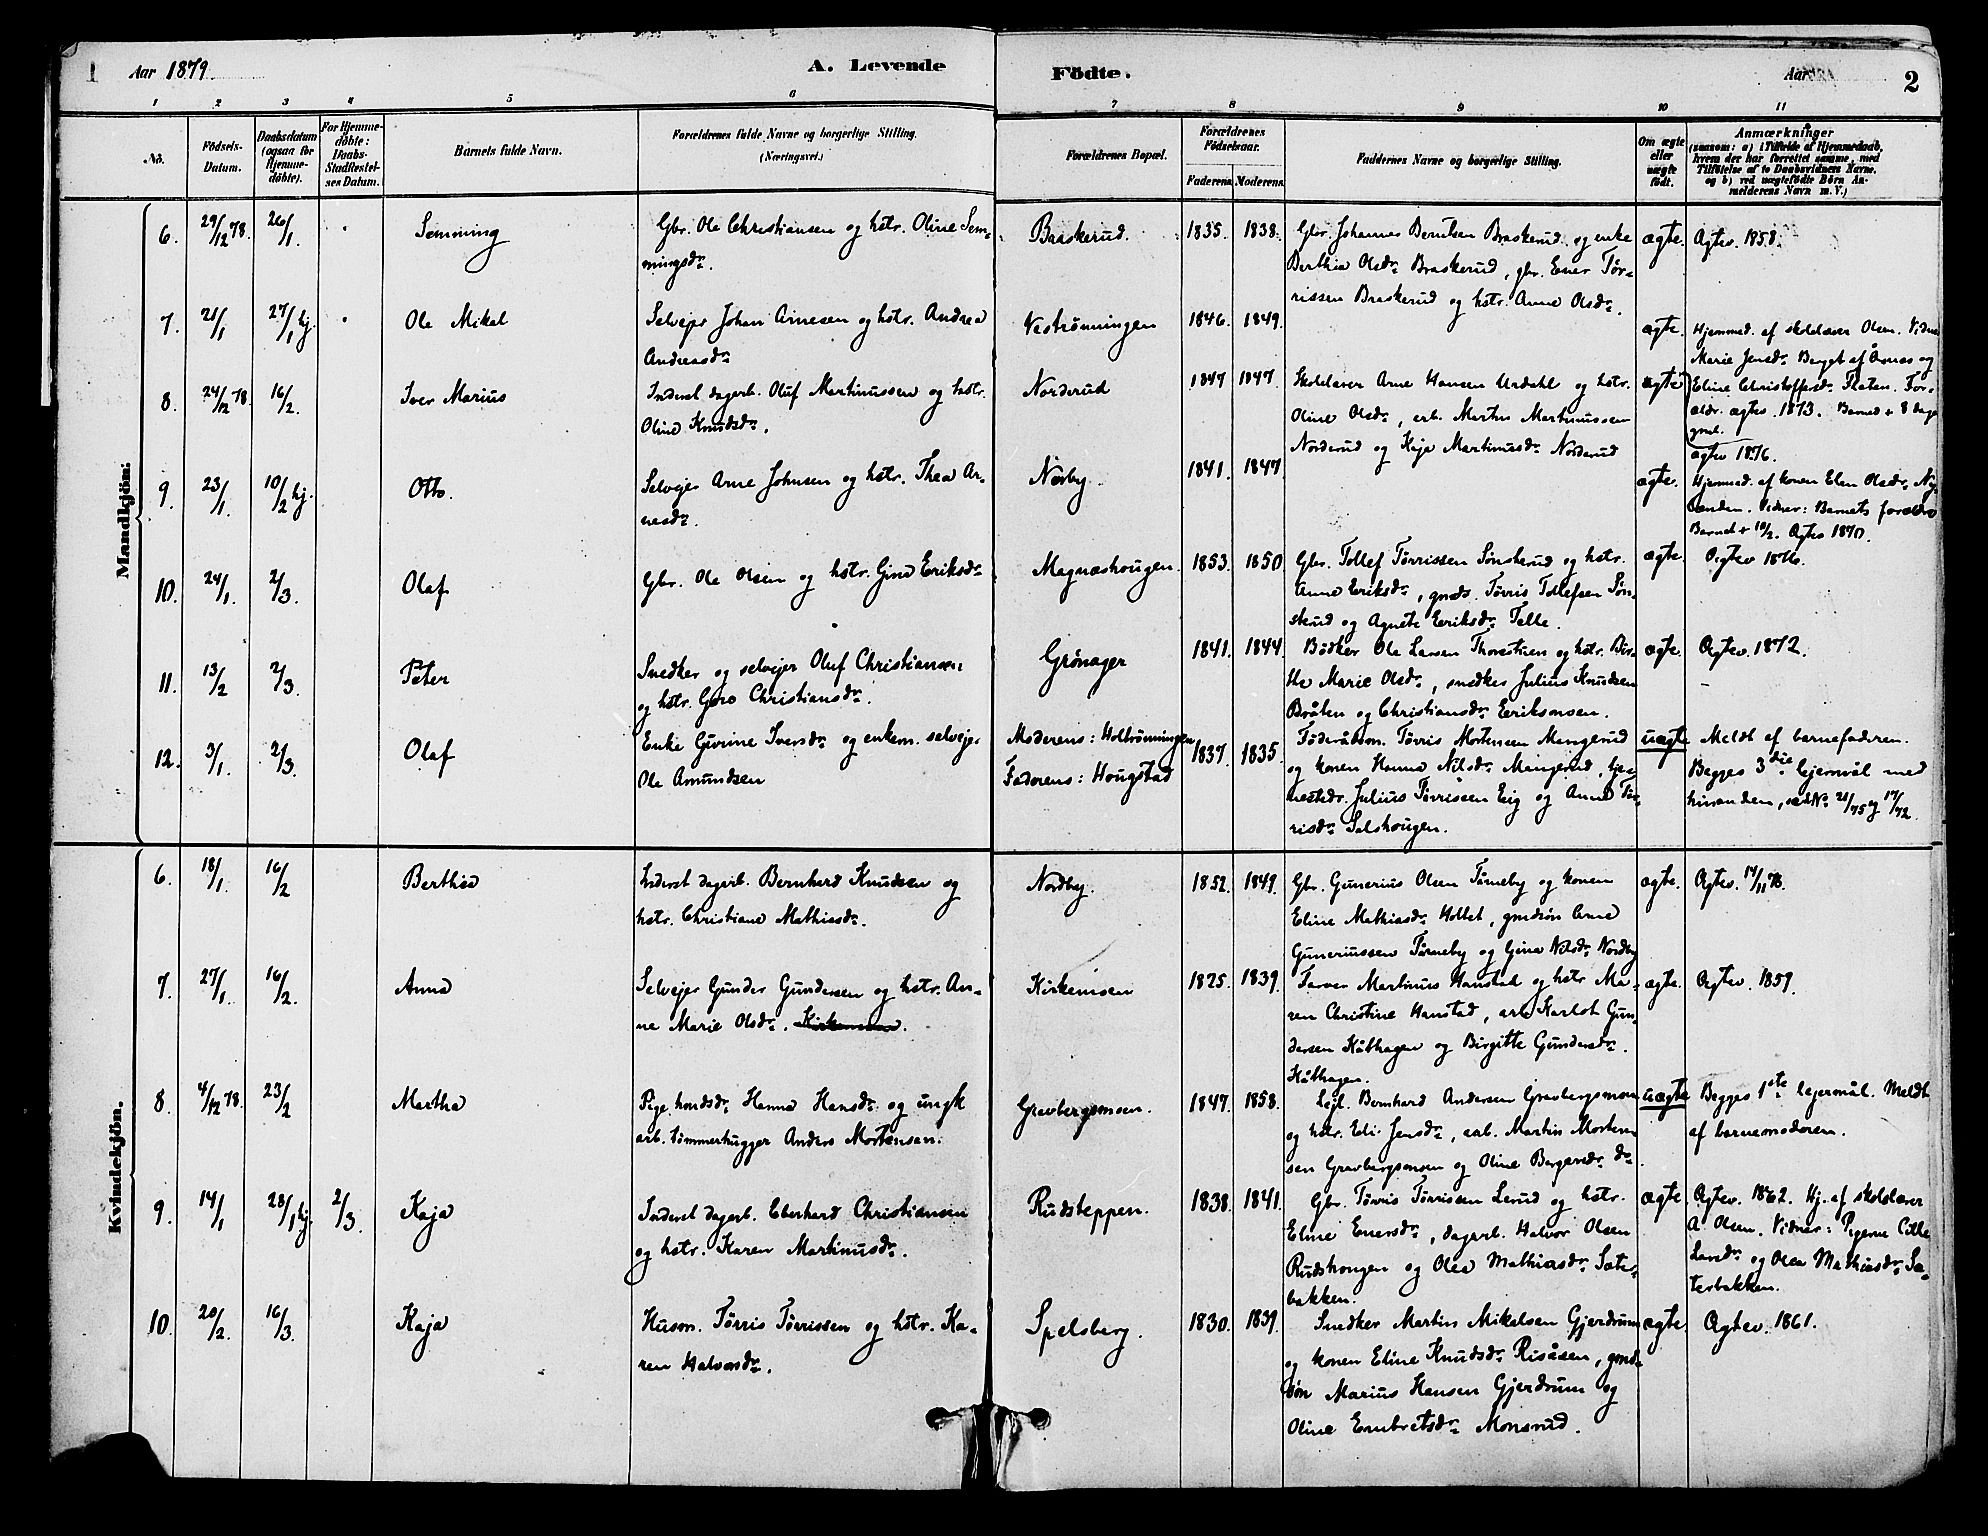 1 Aar 1879. A. Levende Födte. Aar 2
1 2 3 4 5 6 7 8 9 10 11
No.
Födsels-
Datum.
Daabsdatum
(ogsaa for
Hjemme-
döbte).
For Hjemme-
döbte:
Daabs-
Stadfæstel-
ses Datum.
Barnets fulde Navn.
Forældrenes fulde Navne og borgerlige Stilling.
(Næringsvei.)
Forældrenes Bopæl.
Forældrenes
Födselsaar.
Faderens. Moderens.
Faddernes Navne og borgerlige Stilling.
Om ægte
eller
uægte
födt.
Anmærkninger
(saasom: a) i Tilfælde af Hjemmedaab,
hvem der har forrettet samme, med
Tilföielse af to Daabsvidners Navne,
og b) ved uægtefödte Börn An-
melderens Navn m. V.)
Mandkjön:
6. 29/12 78. 26/1. Semming
Gbr. Ole Christiansen og hstr. Oline Sem-
mingsdr.
Braskerud. 1835. 1838.
Gbr. Johannes Berntsen Braskerud og enke
Berthia Olsdr. Braskerud, gbr. Ener Tør-
rissen Braskerud og hstr. Anne Olsdr.
ægte. Ægtev. 1858.
7. 21/1 27/1 hj. Ole Mikal
Selvejer Johan Arnesen og hstr. Andrea
Andreasdr.
Vestrønningen 1846. 1849.
ægte. Hjemmed. af skolelærer Olsen. Vidner
Marie Jensdr. Berget af Åsnæs og
Eline Christoffersd. Flaten. For-
ældr. ægtev. 1873. Barnet + 8 dage
gml.
8. 24/12 78. 16/2. Iver Marius
Inderst dagarb. Oluf Martinussen og hstr.
Oline Knudsdr.
Norderud 1847 1847.
Skolelærer Arne Hansen Urdahl og hstr.
Oline Olsdr., arb. Martin Martinussen
Norderud og Kaja Martinusdr. Norderud
ægte ægtev 1876.
9. 23/1. 10/2 hj. Otto.
Selvejer Arne Johnsen og hstr. Thea Ar-
nesdr.
Nørby. 1841. 1847
ægte. Hjemmed. af konen Elen Olsdr. Ny-
Vidner: Barnets forældre
Barnet + 10/2. Ægtev 1870.
10. 24/1. 2/3. Olaf
Gbr. Ole Olsen og hstr. Gina Eriksdr.
Magnæshougen. 1853. 1850
Gbr. Tollef Tørrissen Sønskerud og hstr.
Anne Eriksdr., gmds. Tørris Tollefsen Søn-
skrud og Agnete Eriksdr. Telle.
ægte. Ægtev 1876.
11. 13/2 2/3. Peter
Snedker og selvejer Oluf Christiansen
og hstr. Goro Christiansdr.
Grønager 1841. 1844.
Bødker Ole Larsen og hstr. Ber-
the Marie Olsdr., snedker Julius Knudsen
Bråten og Christiansdr. Eriksmoen.
ægte. Ægtev. 1872.
12. 3/1. 2/3 Olaf
Enke Gurine Iversdr. og enkem. selvejer
Ole Amundsen
Moderens: Holtrønningen
Faderens: Hougstad
1837. 1835.
Føderådsm. Tørris Mortensen Mangerud
og konen Hanna Nilsdr. Mangerud, tje-
nestedr. Julius Tørrissen Eig og Anne Tør-
risdr. Salshougen.
uægte Meldt af barnefaderen.
Begges 3die lejermål med
hinanden, se No. 21/75 og 17/72.
Kvindekjön.
6. 18/1. 16/2 Berthea
Inderst dagarb. Bernhard Knudsen og
hstr. Christiane Mathiasdr.
Nordby. 1852. 1849.
Gbr. Gunerius Olsen Tørneby og konen
Eline Mathiasdr. Holtet, gmdsøn Arne
Guneriussen Tørneby og Gina Nilsdr. Nordby
ægte. Ægtev. 14/11 78.
7. 27/1. 16/2. Anna
Selvejer Gunder Gundersen og hstr. An-
ne Marie Olsdr.
Kirkemoen 1825. 1839.
Farver Martinus Hanstad og hstr. Ma-
ren Christine Hanstad, arb. Karlot Gun-
dersen Kåthagen og Birgitte Gundersdr.
Kåthagen.
ægte. Ægtev. 1859.
8. 4/12 78. 23/2 Martha
Pige hosdr. Hanna Hansdr. og ungk
arb. tømmerhugger Anders Mortensen.
Gravbergsmoen. 1847. 1858.
Lejl. Bernhard Andersen Gravbergsmoen
og hstr. Edi Jensdr., arb. Martin Morten-
sen Gravbergsmoen og Oline Bergersdr. do
uægte Begges 1ste lejermål. Meldt
af barnemoderen.
9. 14/1 28/1 hj. 2/3. Kaja
Inderst dagarb. Eberhard Christiansen
og hstr. Karen Martinusdr.
Rudsteppen. 1838. 1841.
Gbr. Tørris Tørrissen Lerud og hstr.
Eline Enersdr., dagarb. Halvor Olsen
Rudshougen og Olea Mathiasdr. Sæter-
bakken.
ægte. Ægtev. 1862. Hj. af skolelærer
A. Olsen. Vidner: Pigerne Cille
Larsdr. og Olea Mathiasdr. Sæ-
terbakken.
10. 20/2. 16/3. Kaja
Husm. Tørris Tørrissen og hstr. Ka-
ren Halvorsdr.
Spelsberg. 1830. 1839.
Snedker Martin Mikalsen Gjerdrum
og konen Eline Knudsdr. Risåsen, gmd-
søn Marius Hansen Gjerdrum og
Oline Embretsdr. Monsrud.
ægte. Ægtev. 1861.